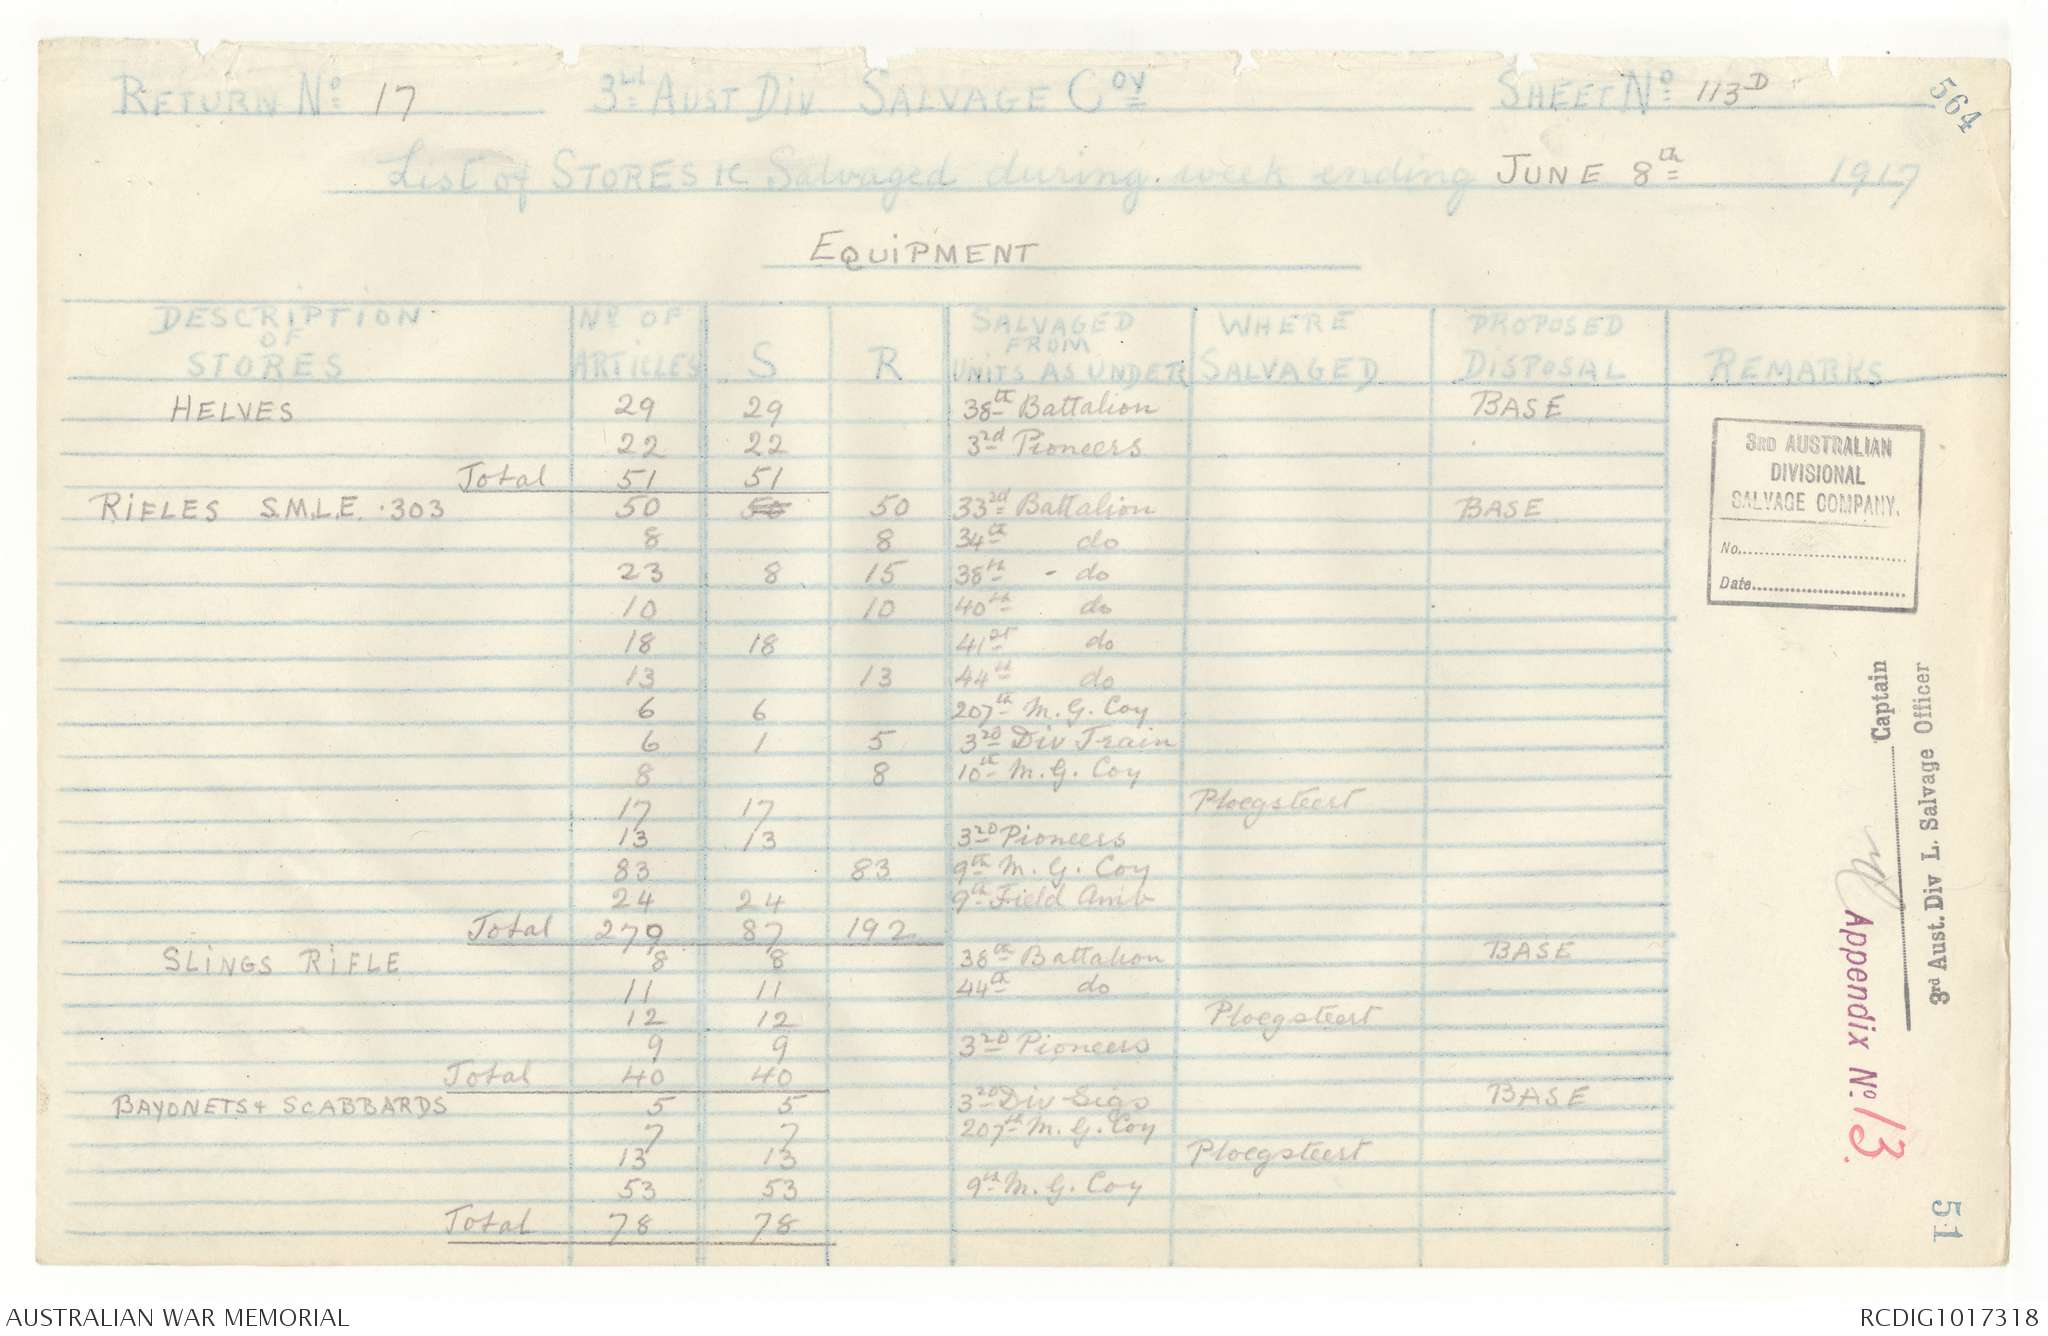 RETURN No 17 3rd AUST DIV SALVAGE Coy SHEET No 113D
564
List of STORES &c Salvaged during week ending JUNE 8th 1917
EQUIPMENT
DESCRIPTION OF STORES No OF ARTICLES S R SALVAGED FROM UNITS AS UNDER WHERE SALVAGED PROPOSED DISPOSAL REMARKS
HELVES 29 29 38th Battalion BASE
22 22 3rd Pioneers
Total 51 51
RIFLES S.M.L.E. .303 50 50 50 33rd Battalion BASE
8 8 34th do
23 8 15 38th - do
10 10 40th do
18 18 41st do
13 13 44th do
6 6 207th M.G. Coy
6 1 5 3rd Div Train
8 8 10th M.G. Coy
17 17 Ploegsteert
13 13 3rd Pioneers
83 83 9th M.G. Coy
24 24 9th Field Amb
Total 279 87 192
SLINGS RIFLE 8 8 38th Battalion BASE
11 11 44th do
12 12 Ploegsteert
9 9 3rd Pioneers
Total 40 40
BAYONETS + SCABBARDS 5 5 3rd Div Sigs BASE
7 7 207th M.G. Coy
13 13 Ploegsteert
53 53 9th M.G. Coy
Total 78 78
3RD AUSTRALIAN
DIVISIONAL
SALVAGE COMPANY.
No.
Date
Captain
3rd Aust. Div L. Salvage Officer
Appendix No. 13.
51
AUSTRALIAN WAR MEMORIAL
RCDIG1017318